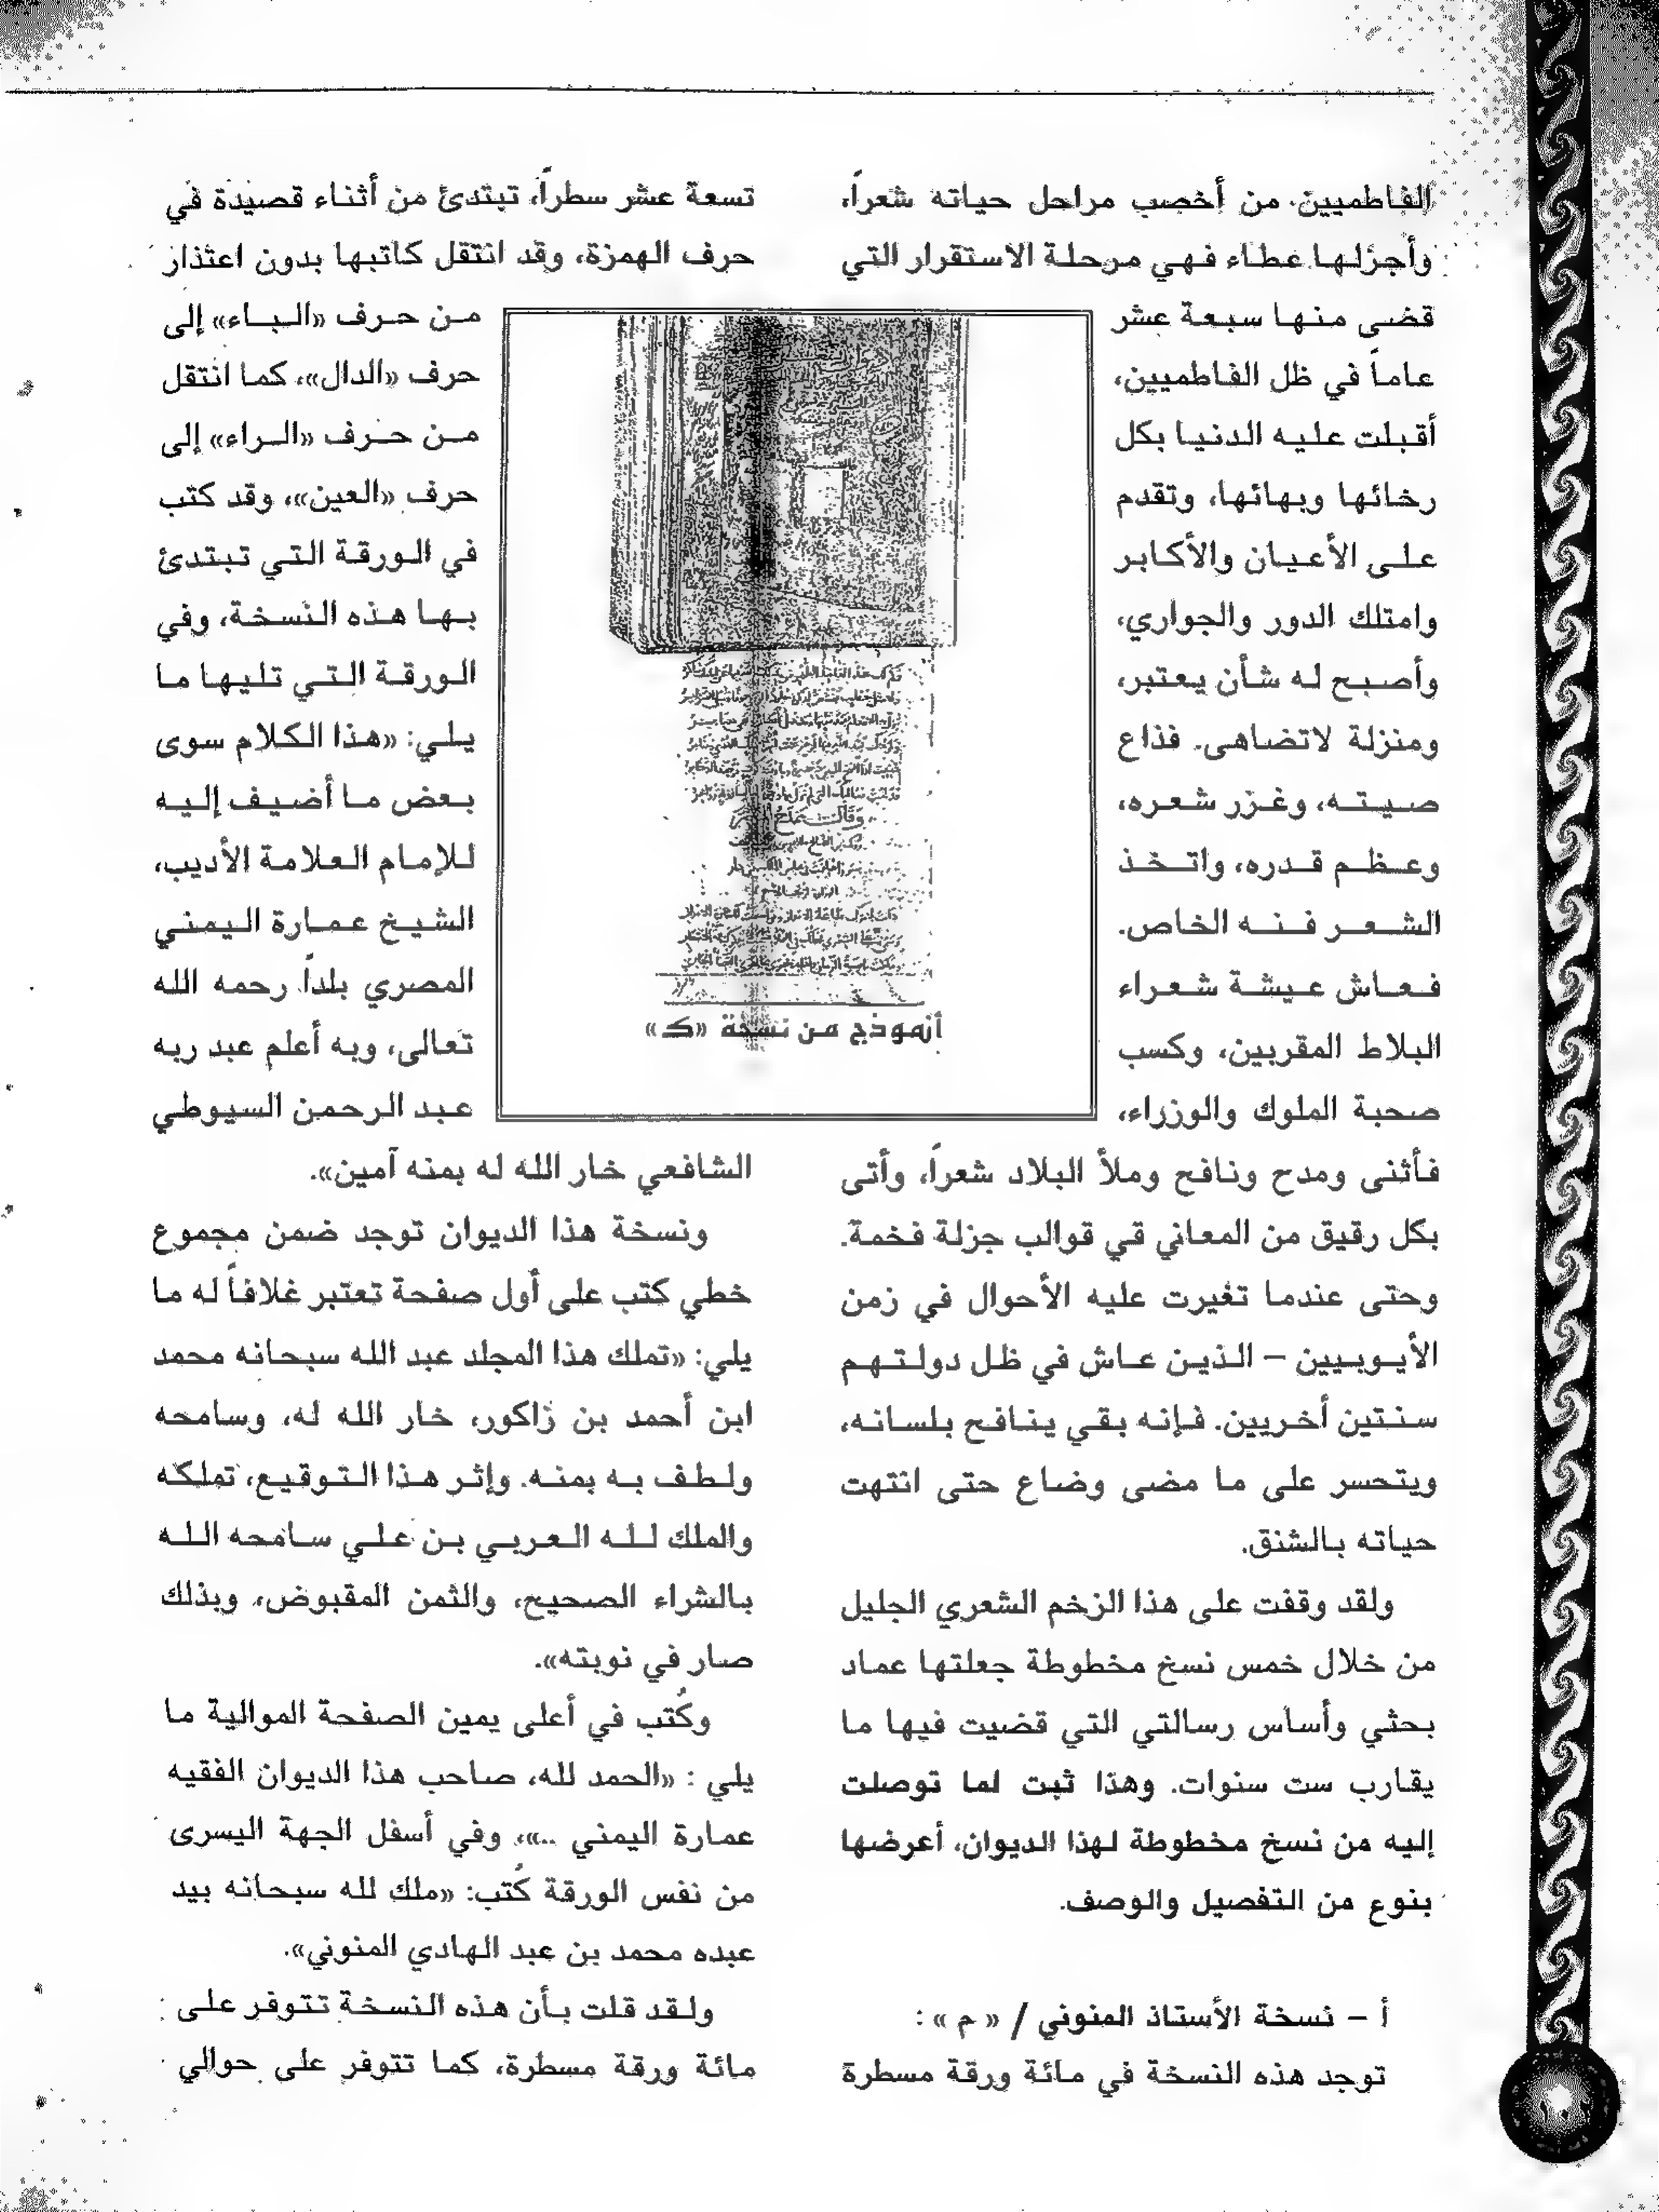 الفاطميين. من أخصب مراحل حياته شعراً،
وأجزلها عطاء فهي مرحلة الاستقرار التي
قضى منها سبعة عشر
عاماً في ظل الفاطميين،
أقبلت عليه الدنيا بكل
رخائها وبهائها، وتقدم
على الأعيان والأكابر
وامتلك الدور والجواري،
وأصبح له شأن يعتبر،
ومنزلة لاتضاهى. فذاع
صيته، وغزر شعره،
وعظم قدره، واتخذ
الشعر فنه الخاص.
فعاش عيشة شعراء
البلاط المقربين، وكسب
صحبة الملوك والوزراء،
فأثنى ومدح ونافح وملأ البلاد شعراً، وأتى
بكل رقيق من المعاني قي قوالب جزلة فخمة.
وحتى عندما تغيرت عليه الأحوال في زمن
الأيوبيين – الذين عاش في ظل دولتهم
سنتين أخريين. فإنه بقي ينافح بلسانه،
ويتحسر على ما مضى وضاع حتى انتهت
حياته بالشنق.
ولقد وقفت على هذا الزخم الشعري الجليل
من خلال خمس نسخ مخطوطة جعلتها عماد
بحثي وأساس رسالتي التي قضيت فيها ما
يقارب ست سنوات. وهذا ثبت لما توصلت
إليه من نسخ مخطوطة لهذا الديوان، أعرضها
بنوع من التفصيل والوصف.
أ – نسخة الأستاذ المنوني / « م » :
توجد هذه النسخة في مائة ورقة مسطرة
تسعة عشر سطراً، تبتدئ من أثناء قصيدة في
حرف الهمزة، وقد انتقل كاتبها بدون اعتذار
من حرف «الباء» إلى
حرف «الدال»، كما انتقل
من حرف «الراء» إلى
حرف «العين»، وقد كتب
في الورقة التي تبتدئ
بها هذه النسخة، وفي
الورقة التي تليها ما
يلي: «هذا الكلام سوى
بعض ما أضيف إليه
للإمام العلامة الأديب،
الشيخ عمارة اليمني
المصري بلداً رحمه الله
تعالى، وبه أعلم عبد ربه
عبد الرحمن السيوطي
الشافعي خار الله له بمنه آمين».
ونسخة هذا الديوان توجد ضمن مجموع
خطي كتب على أول صفحة تعتبر غلافاً له ما
يلي: «تملك هذا المجلد عبد الله سبحانه محمد
ابن أحمد بن زاكور، خار الله له، وسامحه
ولطف به بمنه. وإثر هذا التوقيع، تملكه
والملك لله العربي بن علي سامحه الله
بالشراء الصحيح، والثمن المقبوض، وبذلك
صار في نوبته».
وكُتب في أعلى يمين الصفحة الموالية ما
يلي : «الحمد لله، صاحب هذا الديوان الفقيه
عمارة اليمني ..»، وفي أسفل الجهة اليسرى
من نفس الورقة كُتب: «ملك لله سبحانه بيد
عبده محمد بن عبد الهادي المنوني».
ولقد قلت بأن هذه النسخة تتوفر على
مائة ورقة مسطرة، كما تتوفر على حوالي
أنموذج من نسخة «ك»